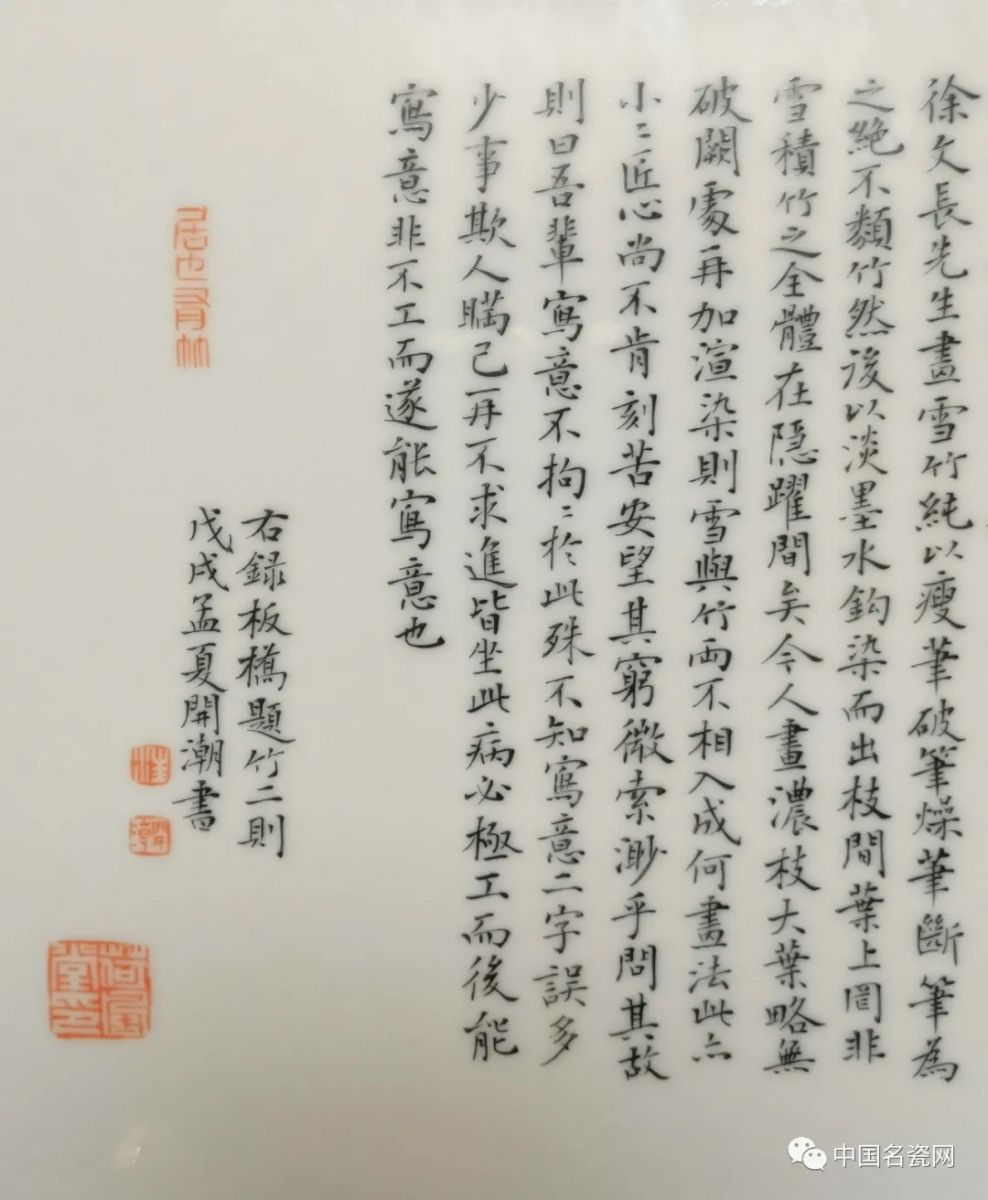 徐文長先生畫雪竹純以瘦筆破筆燥筆斷筆為
之絕不類竹然後以淡墨水鈎染而出枝間葉上罔非
雪積竹之全體在隱躍間矣今人畫濃枝大葉略無
破闕處再加渲染則雪與竹両不相入成何畫法此亦
小〻匠心尚不肯刻苦安望其窮微索渺乎問其故
則曰吾輩寫意不拘〻於此殊不知寫意二字誤多
少事欺人瞞己再不求進皆坐此病必極工而後能
寫意非不工而遂能寫意也
右録板橋題竹二則
戊戌孟夏開潮書
居也有竹
中国名瓷网